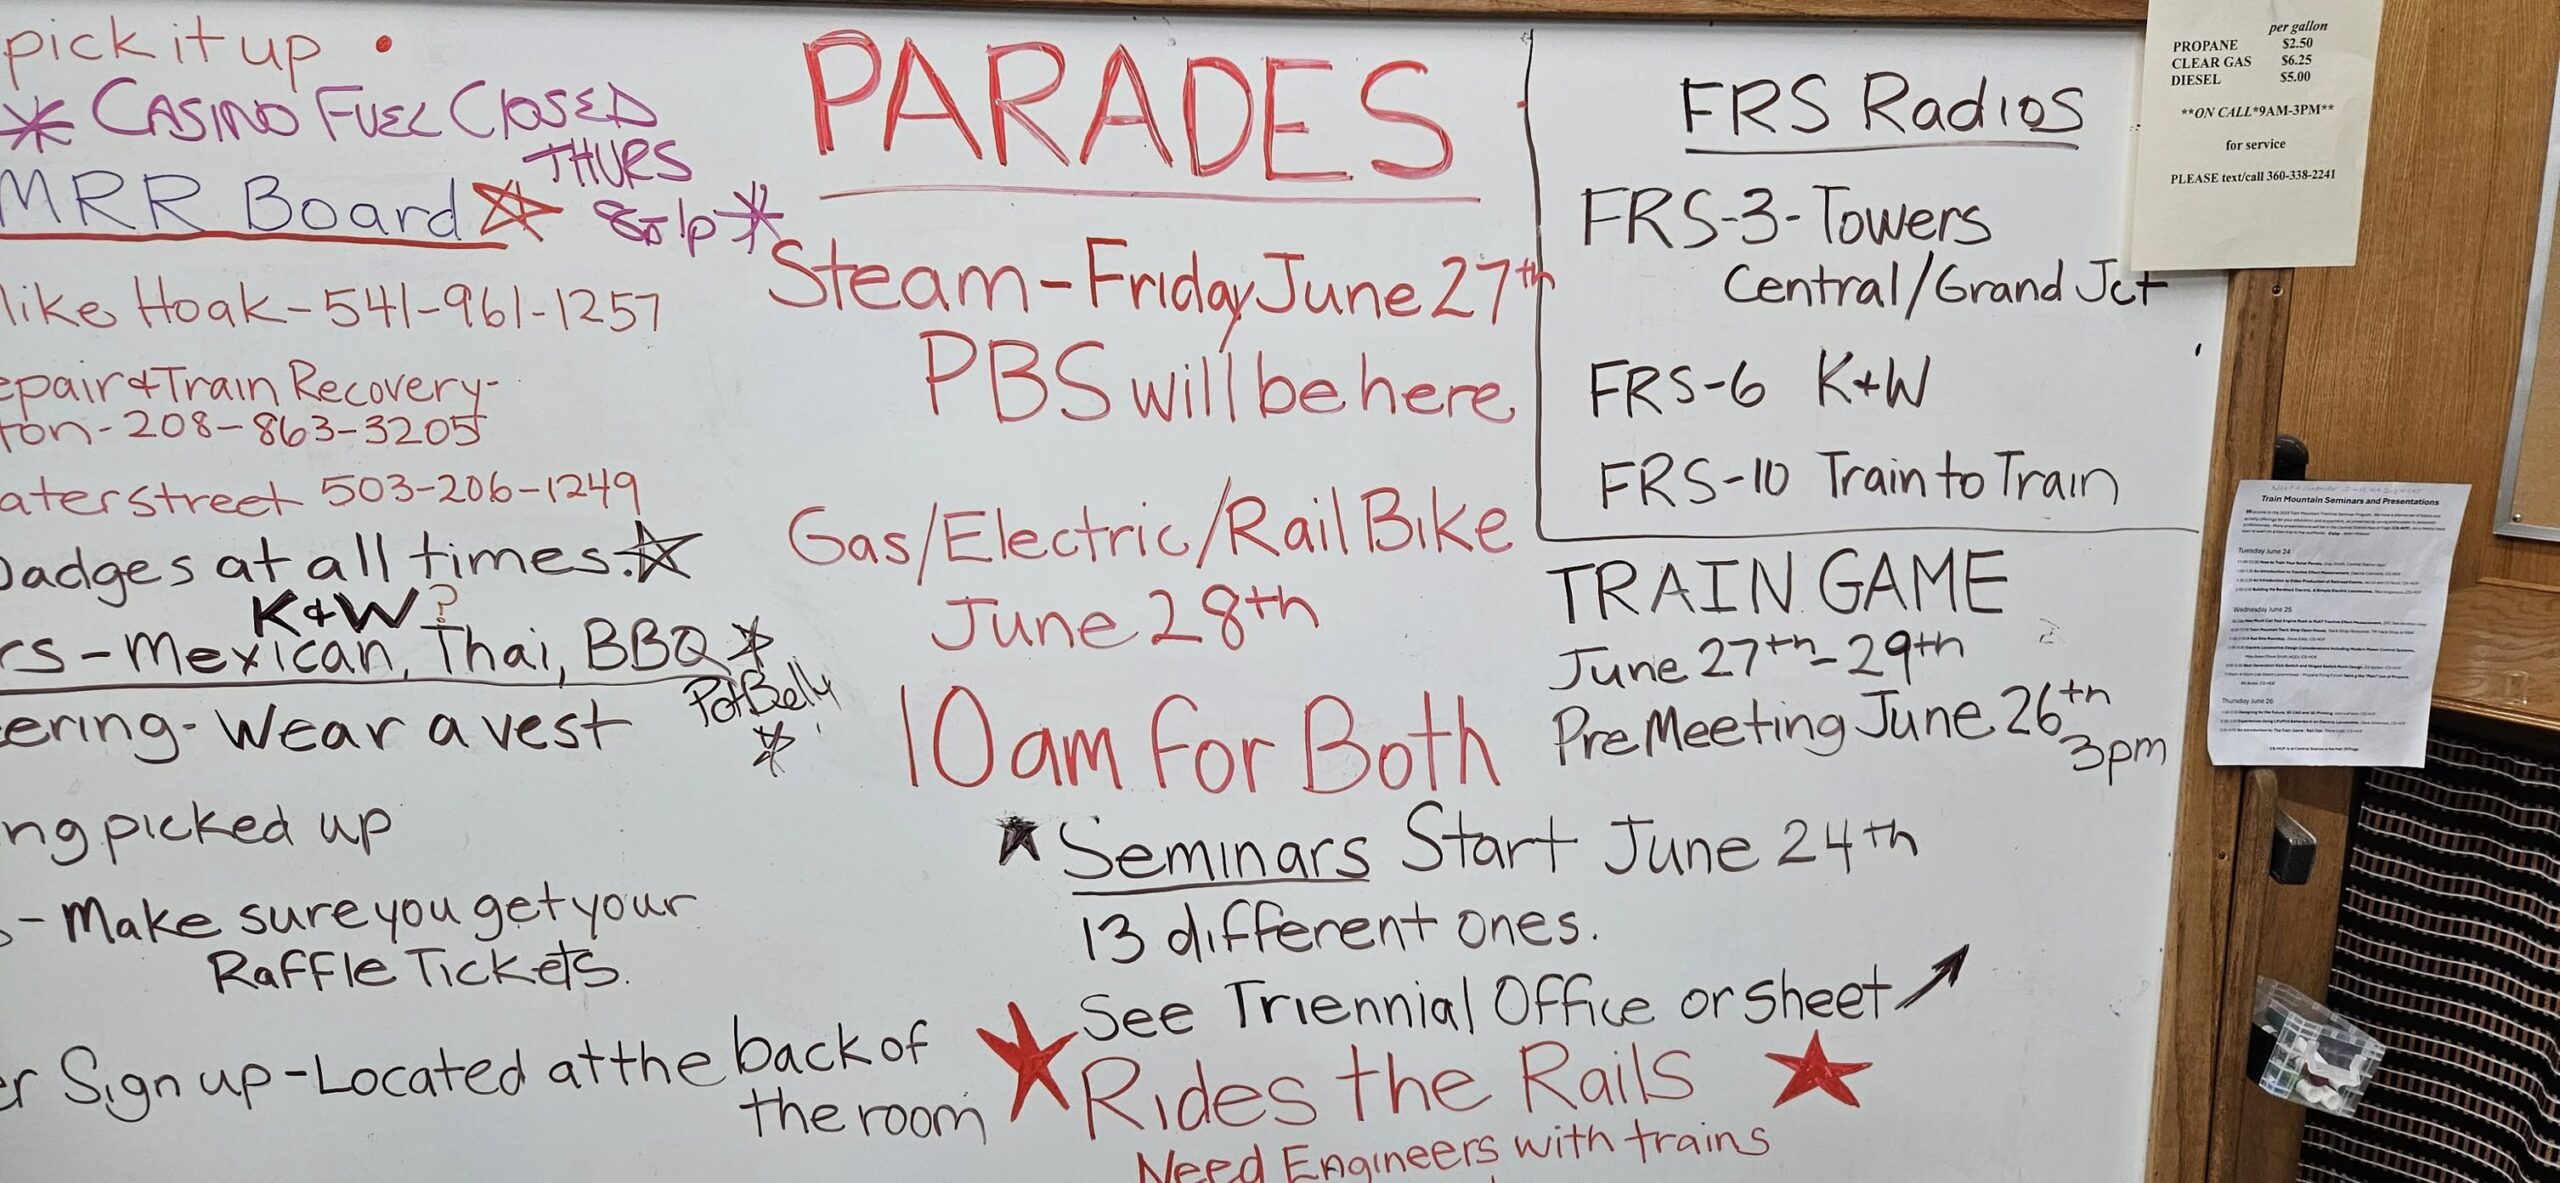 pick it up •
* CASINO FUEL CLOSED
THURS
8-1p *
MRR Board
like Hoak-541-961-1257
epair & Train Recovery-
ton-208-863-3205
aterstreet 503-206-1249
badges at all times.
K&W?
rs-Mexican, Thai, BBQ
Pot Belly
ering-Wear a vest
ng picked up
-Make sure you get your
Raffle Tickets.
er Sign up-Located at the back of
the room
PARADES
Steam-Friday June 27th
PBS will be here
Gas/Electric/Rail Bike
June 28th
10am For Both
FRS Radios
FRS-3-Towers
Central/Grand Jct
FRS-6 K+W
FRS-10 Train to Train
TRAIN GAME
June 27th-29th
Pre Meeting June 26th
3pm
Seminars Start June 24th
13 different ones.
See Triennial Office or sheet
Rides the Rails
Need Engineers with trains
per gallon
PROPANE $2.50
CLEAR GAS $6.25
DIESEL $5.00
**ON CALL*9AM-3PM**
for service
PLEASE text/call 360-338-2241
Train Mountain Seminars and Presentations
Tuesday June 24
Wednesday June 25
Thursday June 26